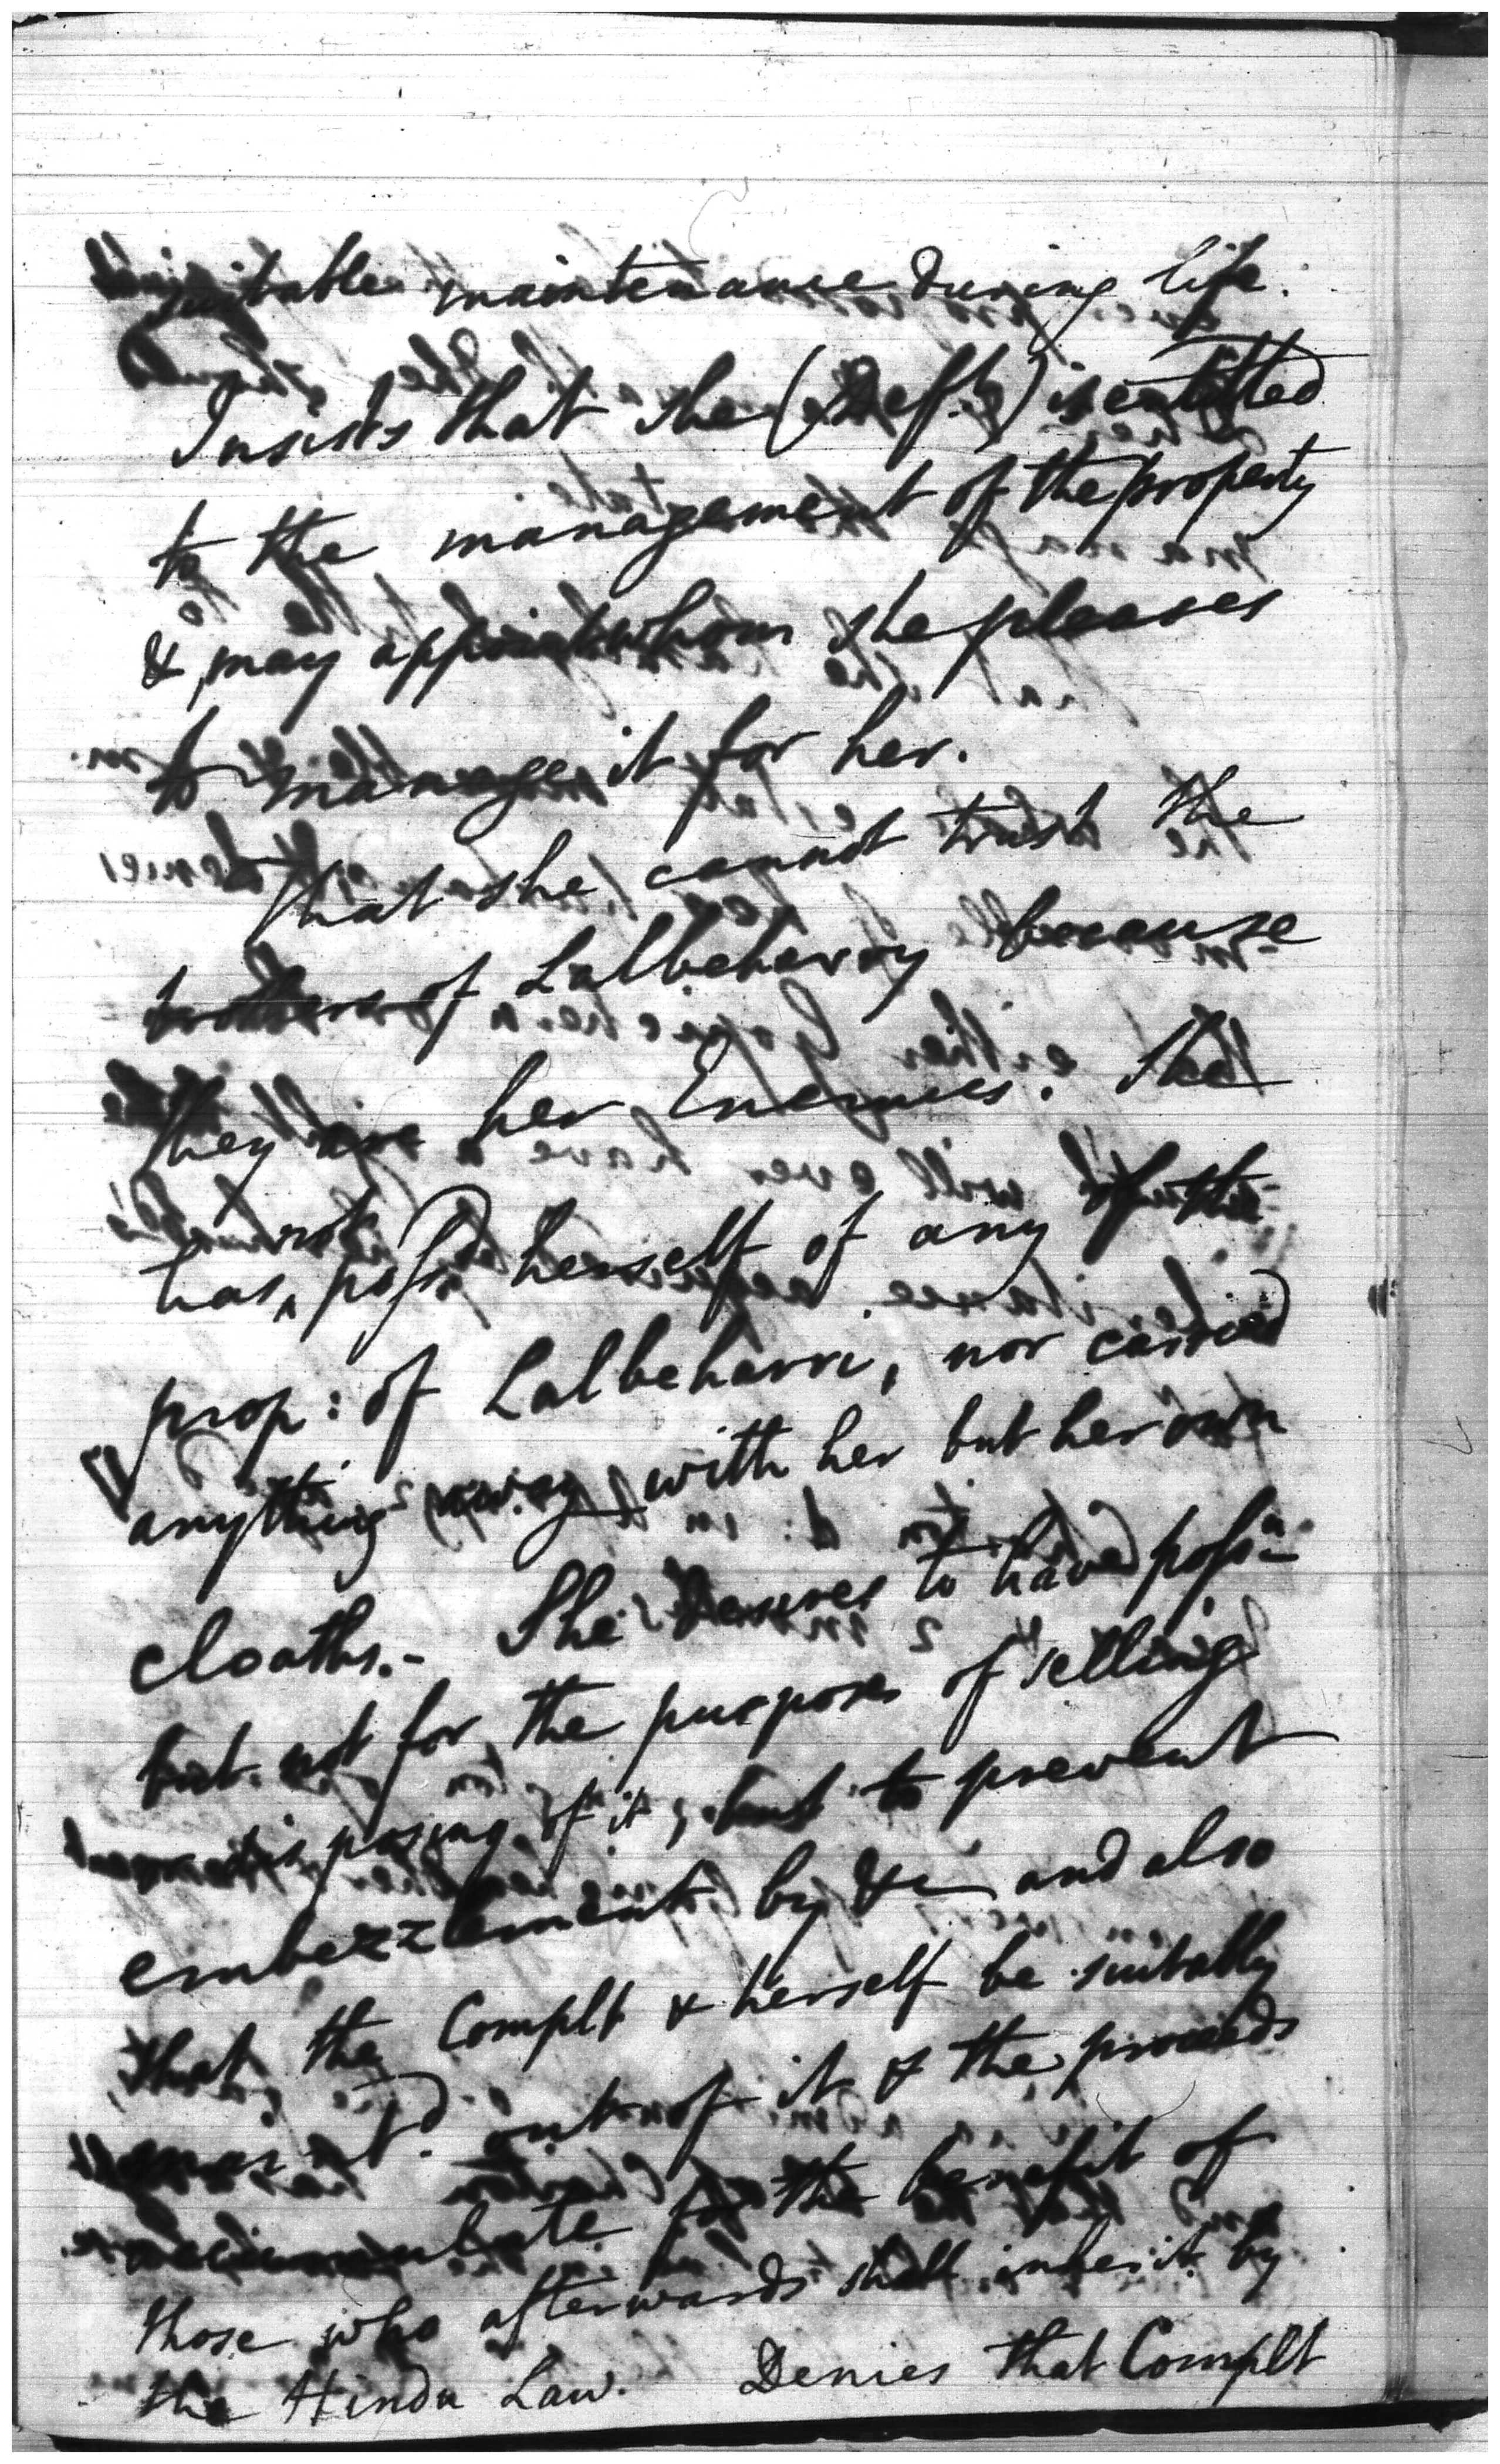 suitable maintenance during life.
Insists that she (Deft.) is entitled
to the management of the property
& may appoint whom she pleases
to manage it for her.
That she cannot trust the
brothers of Lalbeharry because
they are her Enemies. She
has not possd herself of any of the
prop: of Lalbeharri, nor carried
anything away with her but her own
cloaths.- She desires to have possn
but not for the purposes of selling
or disposing of it, but to prevent
embezzlement by &c and also
that the Complt & herself be suitably
maintd. out of it & the proceeds
accumulate for the benefit of
those who afterwards shall inherit by
the Hindu Law. Denies that Complt